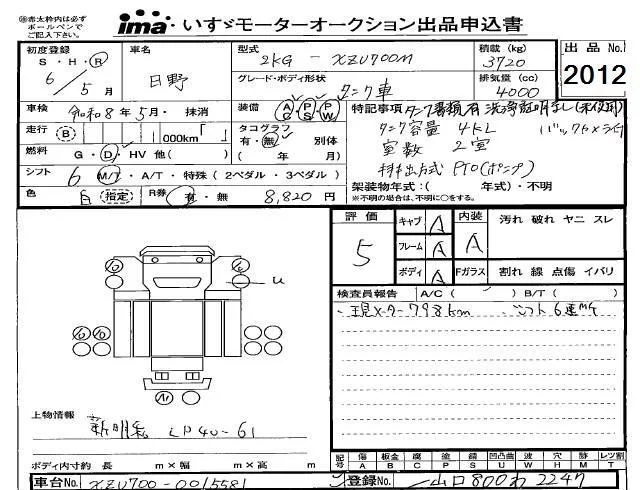 ※赤太枠内は必ず
ボールペンで
ご記入下さい。
ima・いすゞモーターオークション出品申込書
初度登録 車名 型式 2KG - XZU700M 積載 (kg) 3720 出品No.
S・H・R 6/5月 日野 グレード・ボディ形状 タンク車 排気量 (cc) 4000 2012
車検 令和8年5月・抹消 装備 AC・PS・PW 特記事項 タンク書類有 洗浄証明なし(未使用)
走行 B 000km「 」 タコグラフ 有・無 別体 タンク容量 4KL バックカメラ付
燃料 G・D・HV 他( ) ( 年 月) 室数 2室
シフト 6 M/T・A/T・特殊 (2ペダル・3ペダル) 排出方式 PTO(ポンプ)
色 白 指定 R券 有・無 8,820円 架装物年式:( 年式)・不明
※不明の場合は、不明に○をする。
評価 キャブ A 内装 汚れ 破れ ヤニ スレ
5 フレーム A A
ボディ A Fガラス 割れ 線 点傷 イバリ
検査員報告 A/C ( ) B/T ( )
・現メーター798km ・シフト6速MT
u
上物情報
新明和 LP40-61
ボディ内寸約 長 m×幅 m×高 m
記号 傷 板金 腐 塗 錆 凹凸曲 波 穴 跡 レツ割
A B C P S U W H M T
車台No. XZU700-0015581 登録No. 山口800わ2247